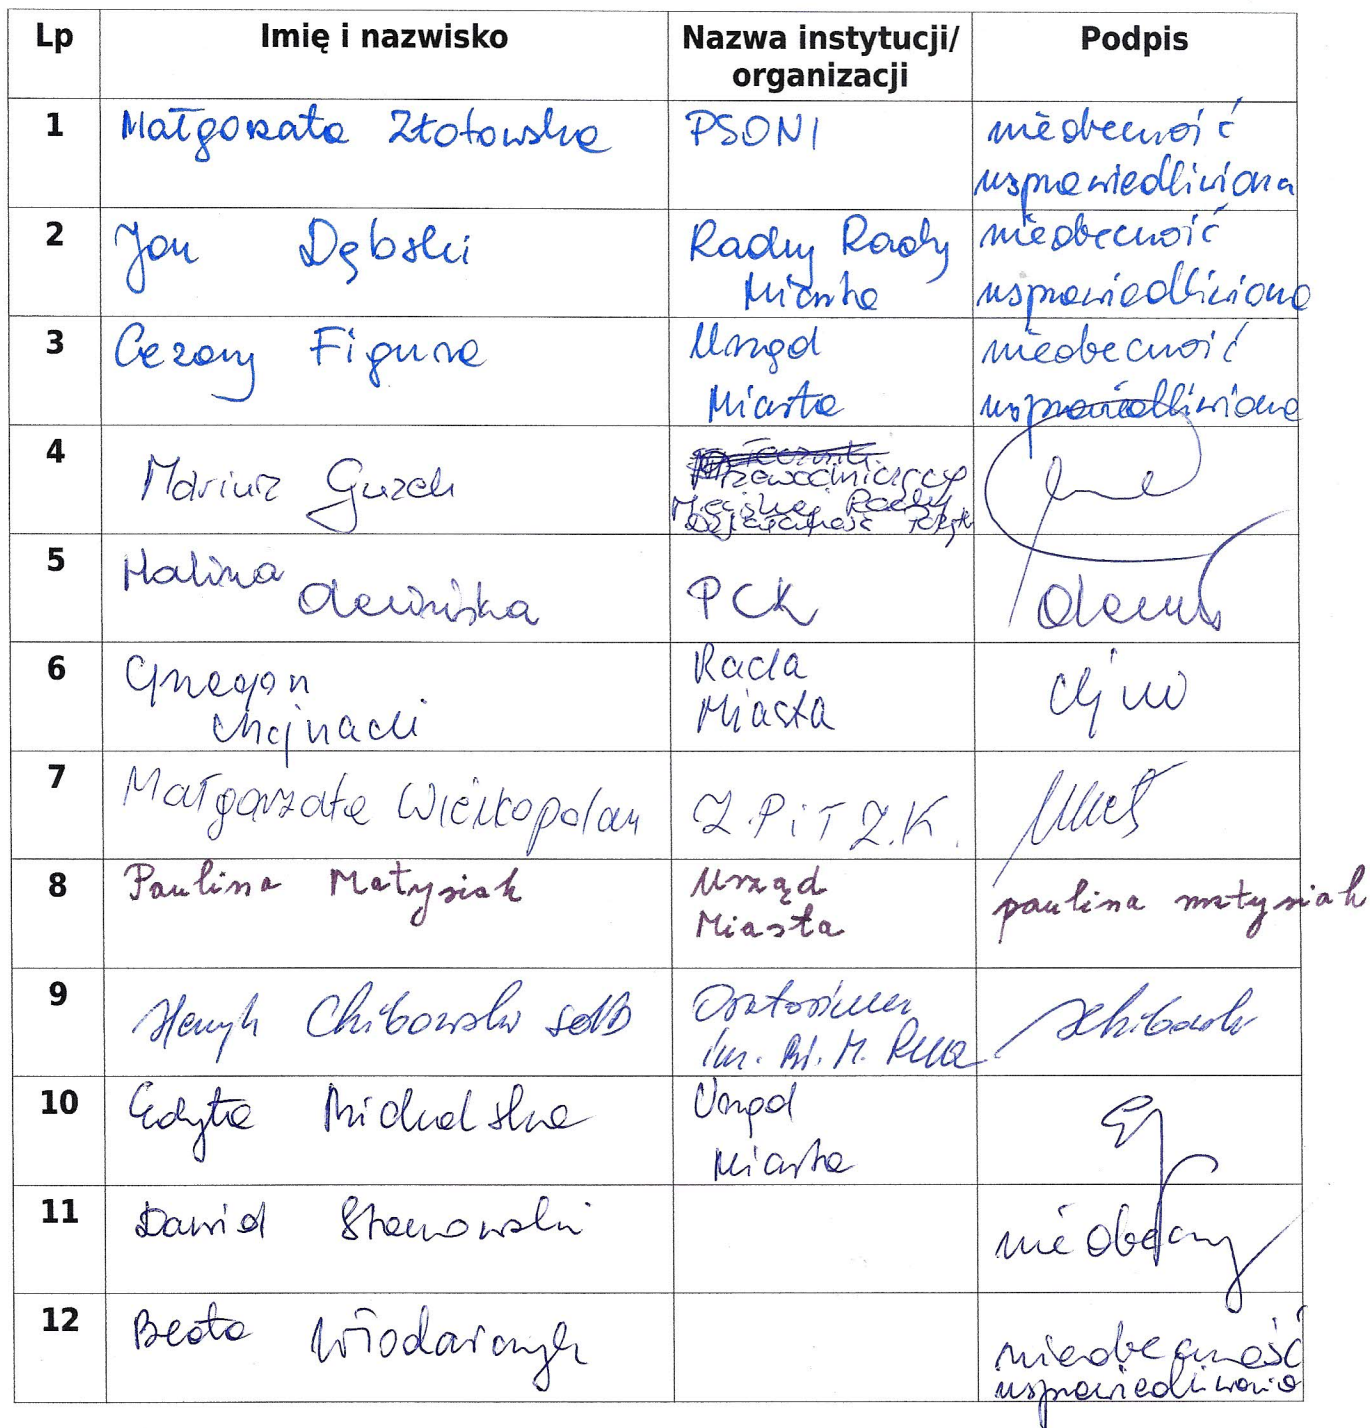 Lp Imię i nazwisko Nazwa instytucji/ organizacji Podpis
1 Małgorzata Złotowska PSONI nieobecność
usprawiedliwiona
2 Jan Dębski Radny Rady nieobecność
Miasta usprawiedliwiona
3 Cezary Figura Urząd nieobecność
Miasta usprawiedliwiona
4 Mariusz Guzek
Przewodniczący
Miejskiej Rady
Działalności Pożytk
5 Halina PCK
6 Grzegorz Rada
Chojnacki Miasta
7 Małgorzata Wielkopolan Z.P.i T.Z.K.
8 Paulina Matysiak Urząd paulina matysiak
Miasta
9 Henryk Chibowski SDB Oratorium
im. Bł. M. Rua
10 Edyta Michalska Urząd
Miasta
11 Dawid nieobecny
12 Beata Włodarczyk nieobecność
usprawiedliwiona